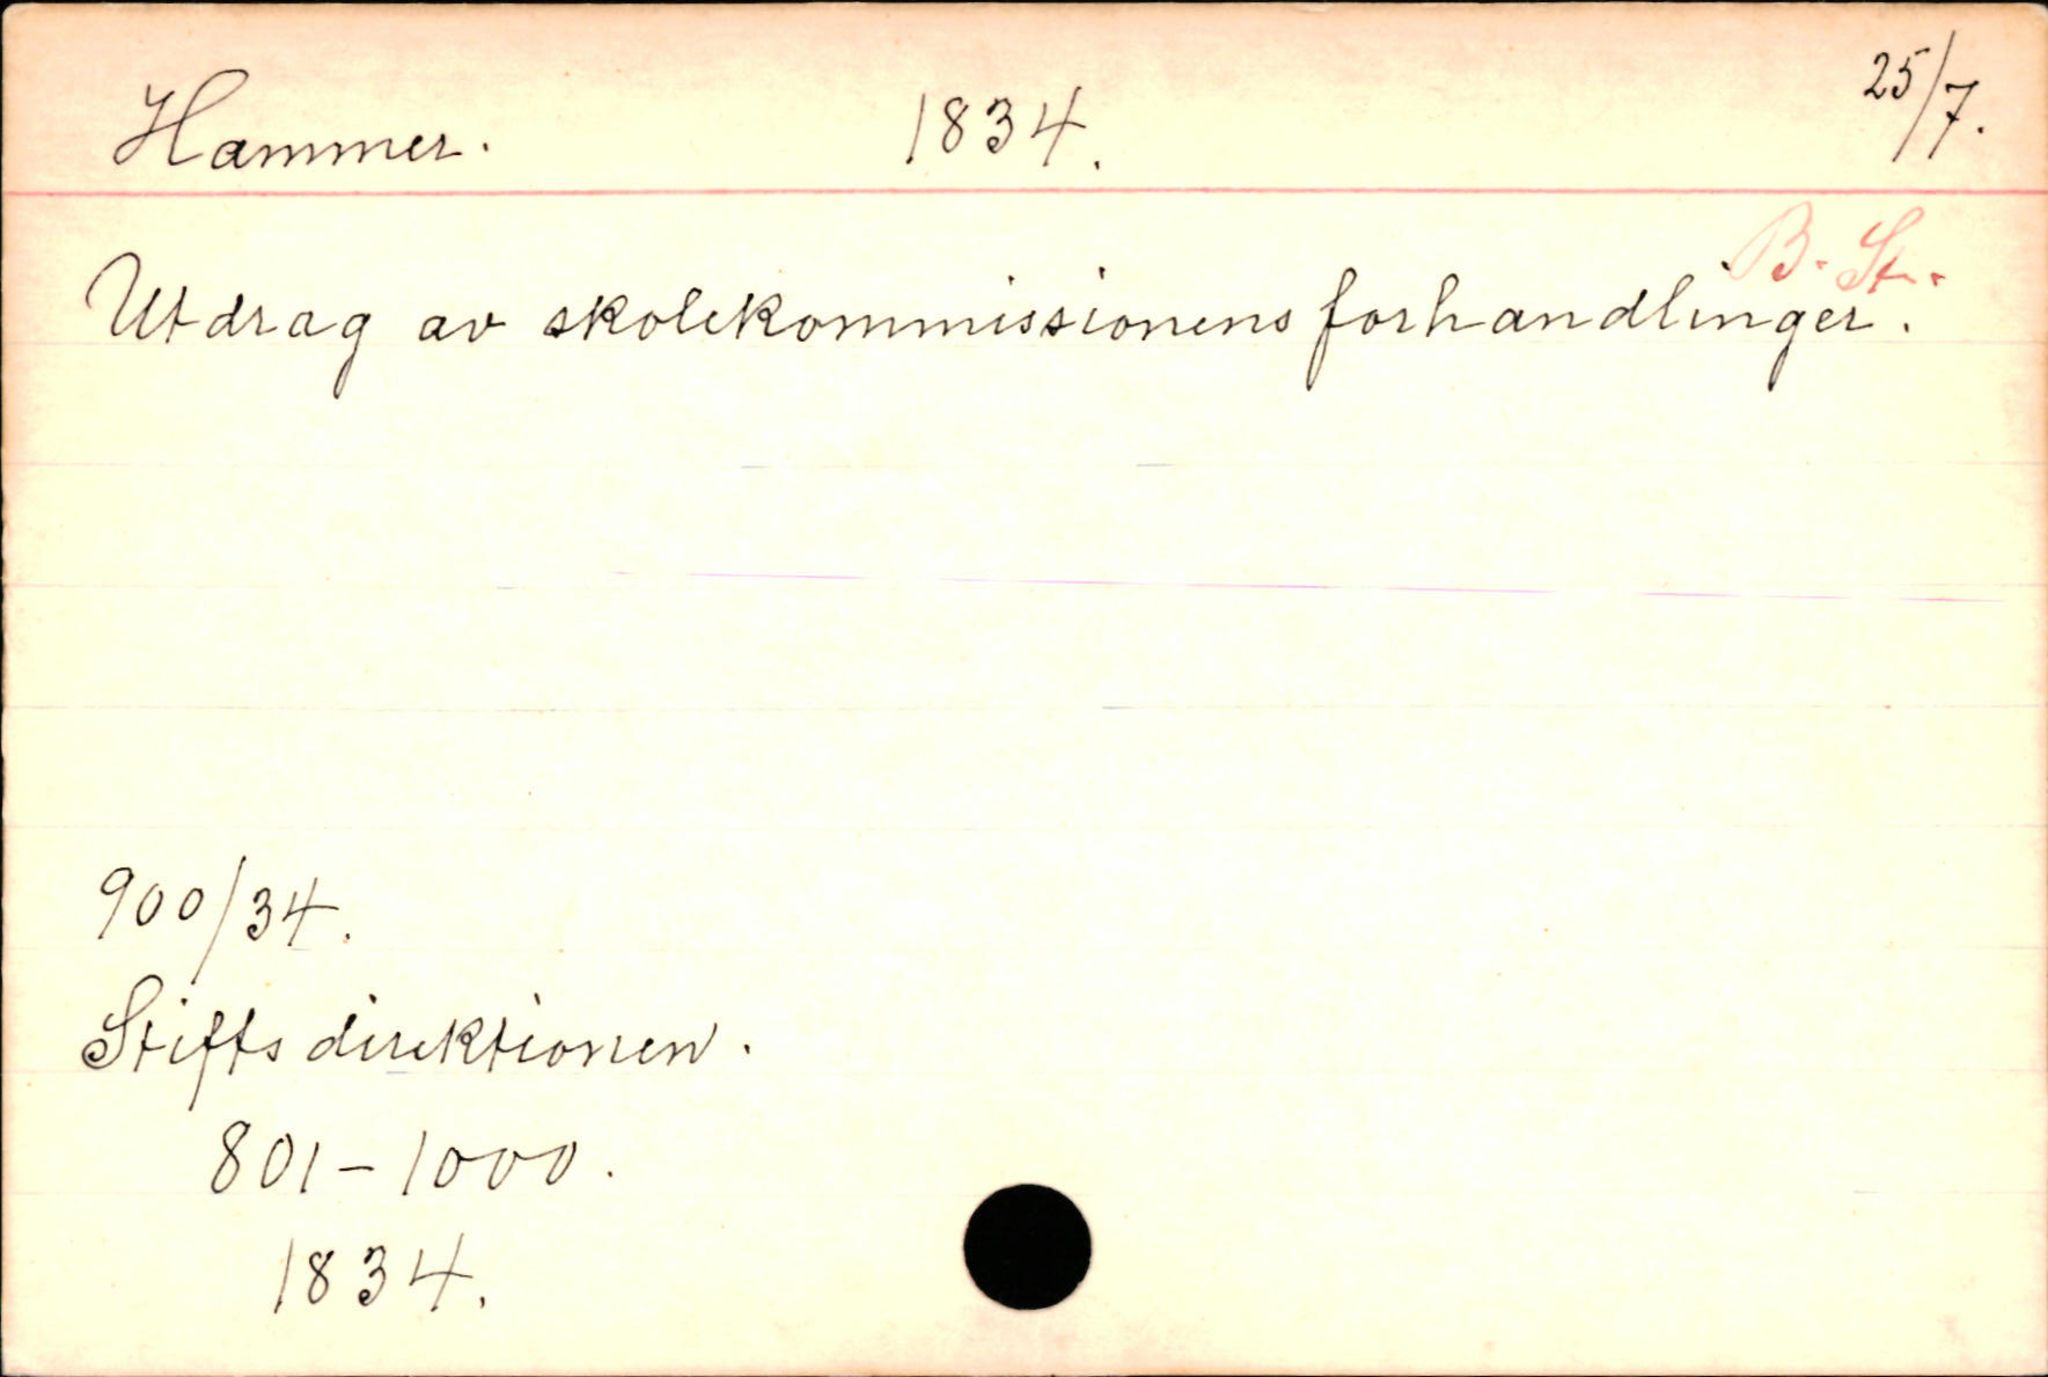 Hammer. 1834. 25/7.
B. St.
Utdrag av skolekommissionens forhandlinger.
900/34.
Stiftsdirektionen.
801-1000.
1834.